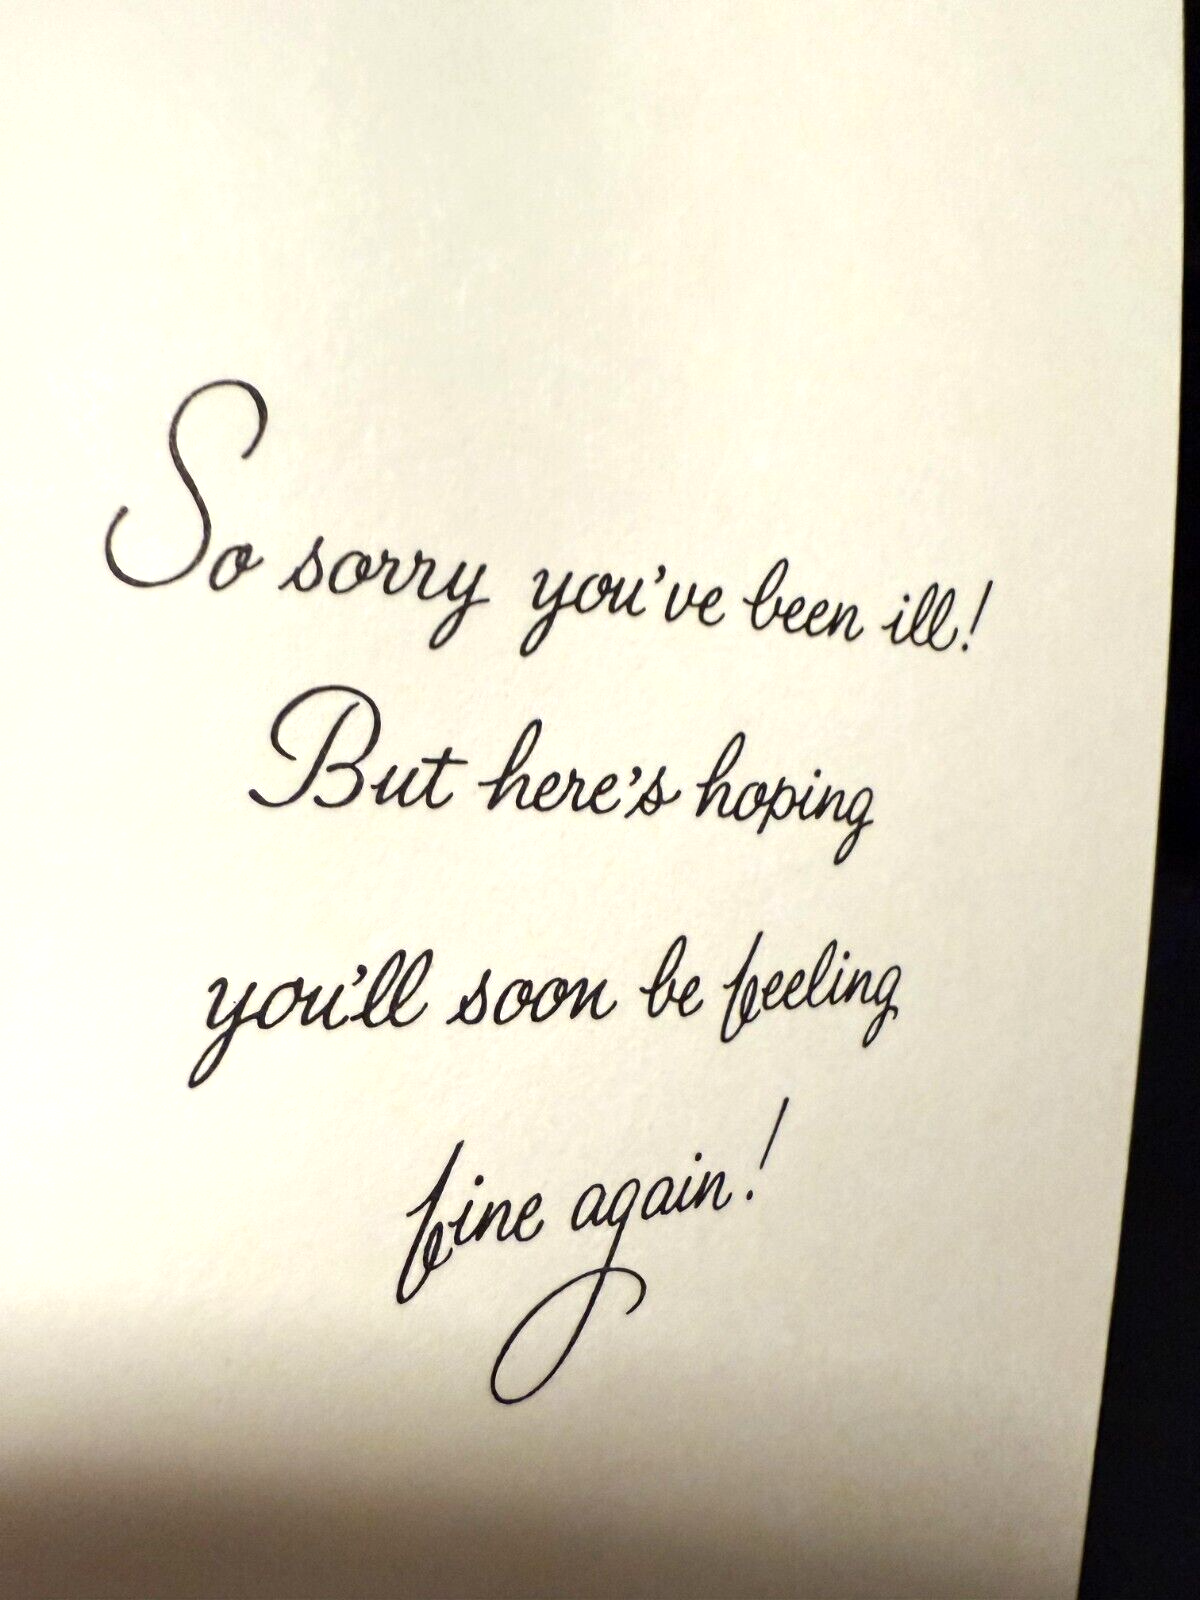 So sorry you've been ill!
But here's hoping
you'll soon be feeling
fine again!